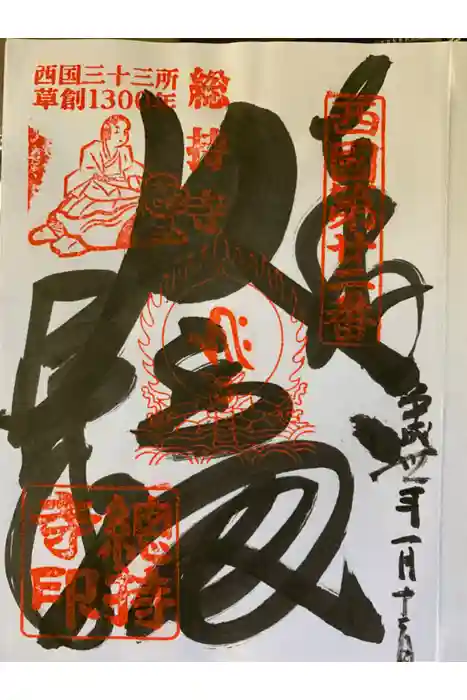 西国三十三所
草創1300年
総持寺
西国第廿二番
平成卅一年一月十六日
大悲閣
總持
寺印